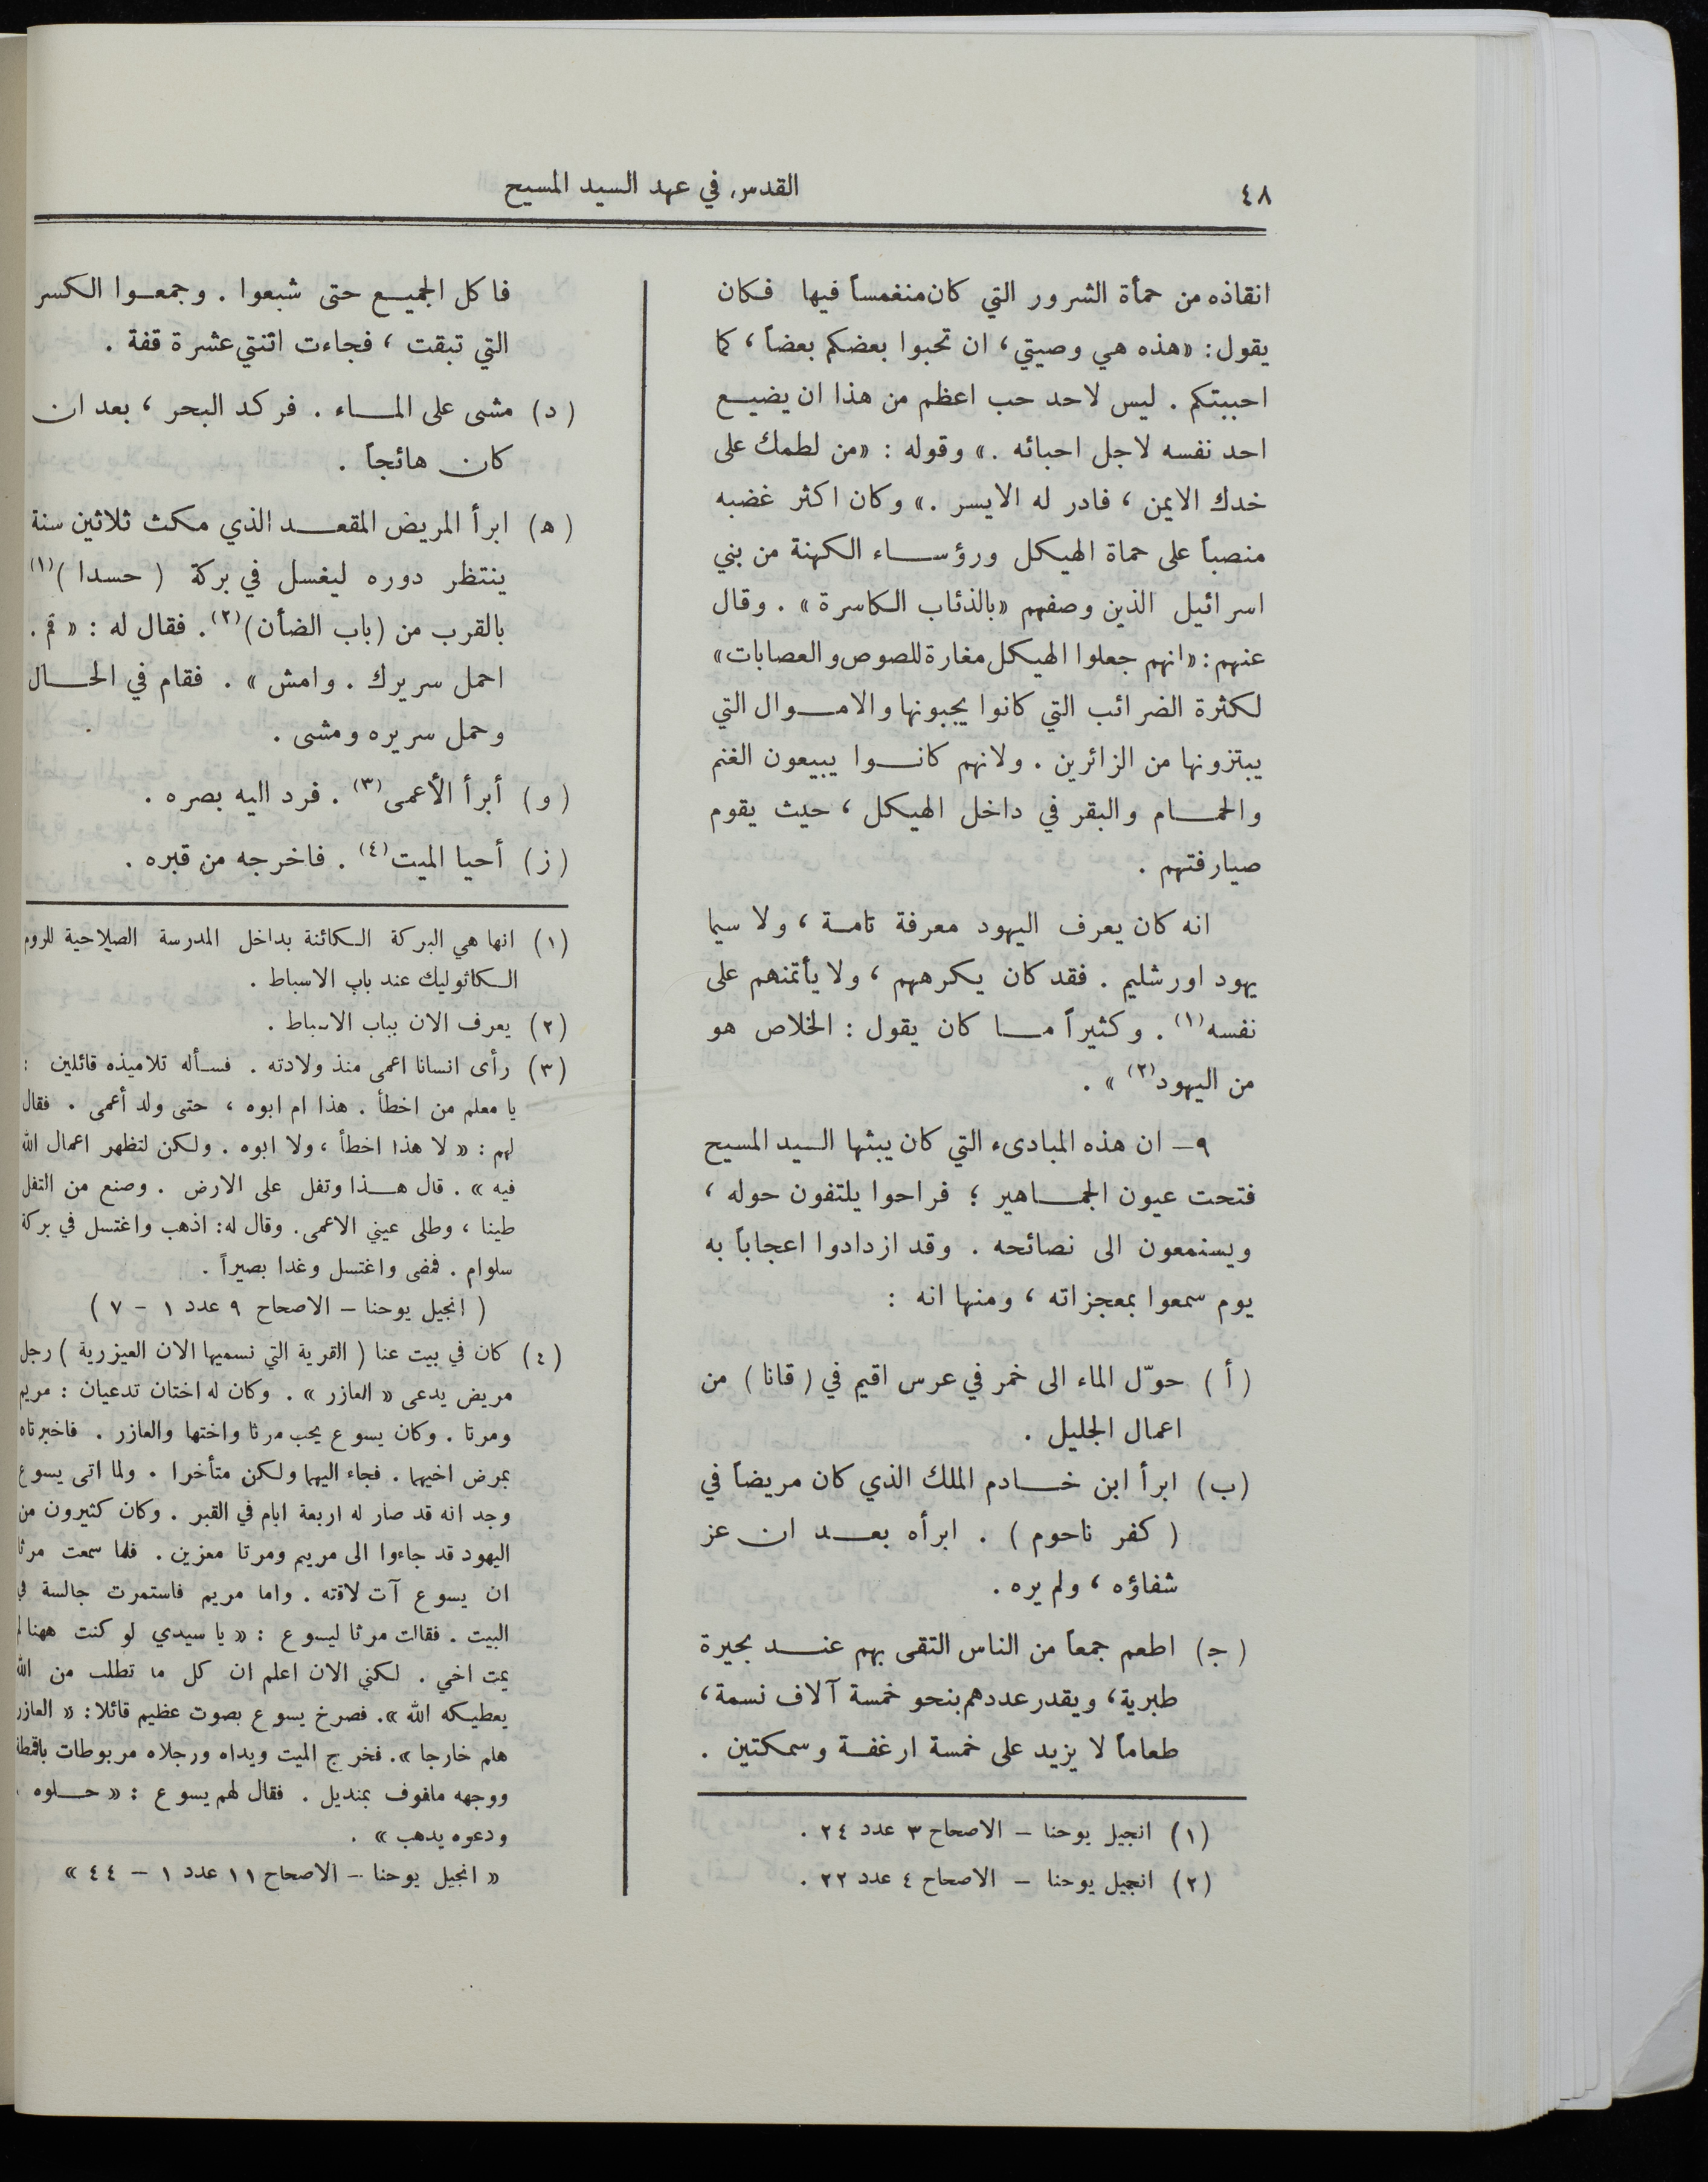 ٤٨
القدس في عهد السيد المسيح
انقاذه من حمأة الشرور التي كان منغمساً فيها فكان
يقول : «هذه هي وصيتي ، ان تحبوا بعضكم بعضاً ، كما
احببتكم . ليس لاحد حب اعظم من هذا ان يضيع
احد نفسه لاجل احبائه .» وقوله : «من لطمك على
خدك الايمن ، فادر له الايسر .» وكان اكثر غضبه
منصباً على حماة الهيكل ورؤساء الكهنة من بني
اسرائيل الذين وصفهم «بالذئاب الكاسرة» . وقال
عنهم : «انهم جعلوا الهيكل مغارة للصوص والعصابات»
لكثرة الضرائب التي كانوا يجبونها والاموال التي
يبتزونها من الزائرين . ولانهم كانوا يبيعون الغنم
والحمام والبقر في داخل الهيكل ، حيث يقوم
صيارفتهم .
انه كان يعرف اليهود معرفة تامة ، ولا سيما
يهود اورشليم . فقد كان يكرههم ، ولا يأتمنهم على
نفسه (١) . وكثيراً ما كان يقول : الخلاص هو
من اليهود (٢) » .
٩ – ان هذه المبادىء التي كان يبثها السيد المسيح
فتحت عيون الجماهير ؛ فراحوا يلتفون حوله ،
ويستمعون الى نصائحه . وقد ازدادوا اعجاباً به
يوم سمعوا بمعجزاته ، ومنها انه :
(أ) حوّل الماء الى خمر في عرس اقيم في (قانا) من
اعمال الجليل .
(ب) ابرأ ابن خادم الملك الذي كان مريضاً في
( كفر ناحوم ) . ابرأه بعد ان عز
شفاؤه ، ولم يره .
(ج) اطعم جمعاً من الناس التقى بهم عند بحيرة
طبرية ، ويقدر عددهم بنحو خمسة آلاف نسمة ،
طعاماً لا يزيد على خمسة ارغفة وسمكتين .
(١) انجيل يوحنا – الاصحاح ٣ عدد ٢٤ .
(٢) انجيل يوحنا – الاصحاح ٤ عدد ٢٢ .
فاكل الجميع حتى شبعوا . وجمعوا الكسر
التي تبقت ، فجاءت اثنتي عشرة قفة .
(د) مشى على الماء . فركد البحر ، بعد ان
كان هائجاً .
(ه) ابرأ المريض المقعد الذي مكث ثلاثين سنة
ينتظر دوره ليغسل في بركة ( حسدا ) (١)
بالقرب من (باب الضأن) (٢) . فقال له : « قم .
احمل سريرك . وامش » . فقام في الحال
وحمل سريره ومشى .
(و) أبرأ الأعمى (٣) . فرد اليه بصره .
(ز) أحيا الميت (٤) . فاخرجه من قبره .
(١) انها هي البركة الكائنة بداخل المدرسة الصلاحية للروم
الكاثوليك عند باب الاسباط .
(٢) يعرف الان بباب الاسباط .
(٣) رأى انسانا اعمى منذ ولادته . فسأله تلاميذه قائلين :
يا معلم من اخطأ . هذا ام ابوه ، حتى ولد أعمى . فقال
لهم : « لا هذا اخطأ ، ولا ابوه . ولكن لتظهر اعمال الله
فيه » . قال هذا وتفل على الارض . وصنع من التفل
طينا ، وطلى عيني الاعمى . وقال له : اذهب واغتسل في بركة
سلوام . فمضى واغتسل وغدا بصيراً .
( انجيل يوحنا – الاصحاح ٩ عدد ١ – ٧ )
(٤) كان في بيت عنا ( القرية التي نسميها الان العيزرية ) رجل
مريض يدعى « العازر » . وكان له اختان تدعيان : مريم
ومرتا . وكان يسوع يحب مرثا واختها والعازر . فاخبرتاه
بمرض اخيهما . فجاء اليهما ولكن متأخرا . ولما اتى يسوع
وجد انه قد صار له اربعة ايام في القبر . وكان كثيرون من
اليهود قد جاءوا الى مريم ومرتا معزين . فلما سمعت مرثا
ان يسوع آت لاقته . واما مريم فاستمرت جالسة في
البيت . فقالت مرثا ليسوع : « يا سيدي لو كنت ههنا لم
يمت اخي . لكني الان اعلم ان كل ما تطلب من الله
يعطيكه الله » . فصرخ يسوع بصوت عظيم قائلا : « العازر
هلم خارجا » . فخرج الميت ويداه ورجلاه مربوطات باقمطة
ووجهه ملفوف بمنديل . فقال لهم يسوع : « حلوه .
ودعوه يذهب » .
« انجيل يوحنا – الاصحاح ١١ عدد ١ – ٤٤ »